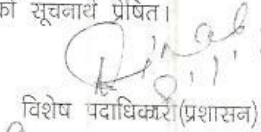 को सूचनार्थ प्रेषित।
विशेष पदाधिकारी(प्रशासन)